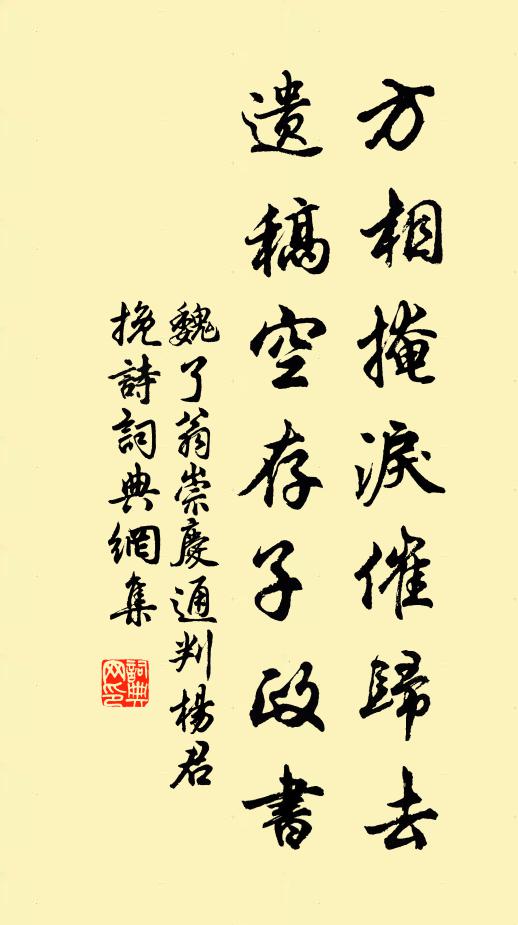 方相掩淚催歸去
遺稿空存子政書
魏了翁崇慶通判楊君
挽詩詞典網集
詞典網印